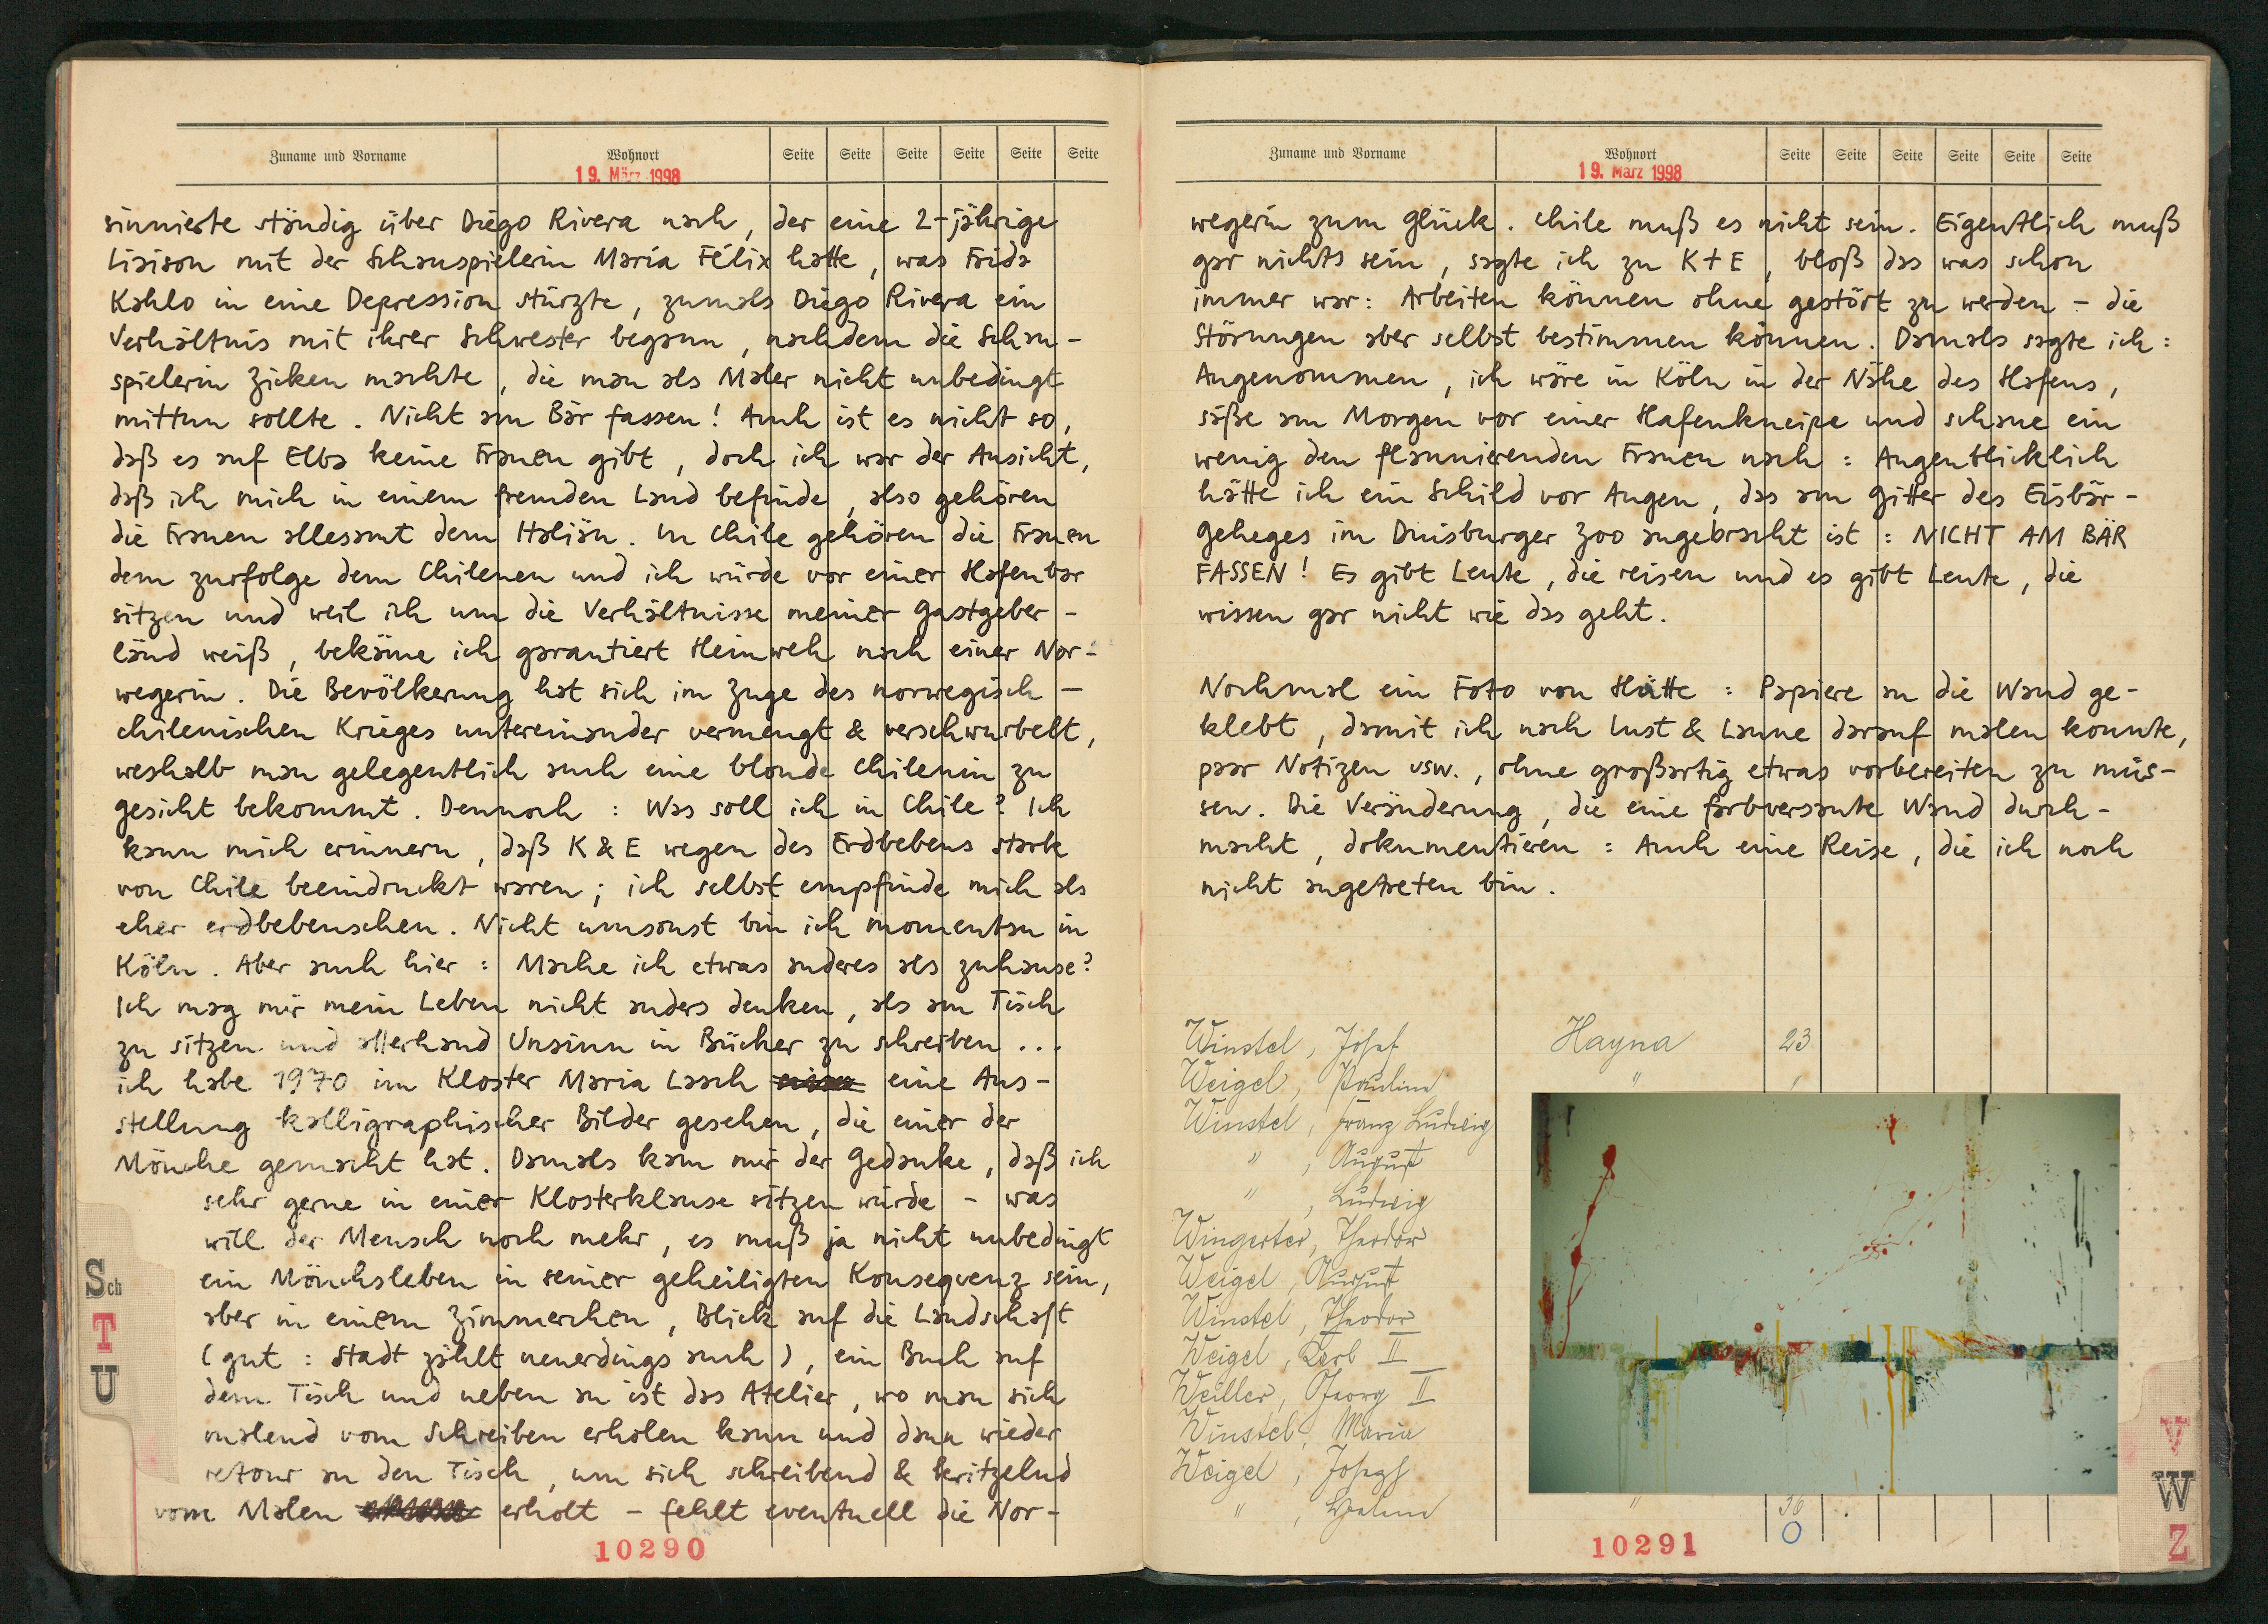 Zuname und Vorname Wohnort Seite Seite Seite Seite Seite Seite
19. März 1998
sinnierte ständig über Diego Rivera nach, der eine 2-jährige
Liaison mit der Schauspielerin María Félix hatte, was Frida
Kahlo in eine Depression stürzte, zumals Diego Rivera ein
Verhältnis mit ihrer Schwester begann, nachdem die Schau-
spielerin Zicken machte, die man als Maler nicht unbedingt
mittun sollte. Nicht am Bär fassen! Auch ist es nicht so,
daß es auf Elba keine Frauen gibt, doch ich war der Ansicht,
daß ich mich in einem fremden Land befinde, also gehören
die Frauen allesamt dem Italiän. In Chile gehören die Frauen
dem zurfolge dem Chilenen und ich würde vor einer Hafenbar
sitzen und weil ich um die Verhältnisse meiner Gastgeber-
länd weiß, bekäme ich garantiert Heimweh nach einer Nor-
wegerin. Die Bevölkerung hat sich im Zuge des norwegisch-
chilenischen Krieges untereinander vermengt & verschwurbelt,
weshalb man gelegentlich auch eine blonde Chilenin zu
gesicht bekommt. Dennoch: Was soll ich in Chile? Ich
kann mich erinnern, daß K & E wegen des Erdbebens stark
von Chile beeindruckt waren; ich selbst empfinde mich als
eher erdbebenscheu. Nicht umsonst bin ich momentan in
Köln. Aber auch hier: Mache ich etwas anderes als zuhause?
Ich mag mir mein Leben nicht anders denken, als am Tisch
zu sitzen und allerhand Unsinn in Bücher zu schreiben ...
ich habe 1970 im Kloster Maria Laach eine Aus-
stellung kalligraphischer Bilder gesehen, die einer der
Mönche gemacht hat. Damals kam mir der Gedanke, daß ich
sehr gerne in einer Klosterklause sitzen würde - was
will der Mensch noch mehr, es muß ja nicht unbedingt
ein Mönchsleben in seiner geheiligten Konsequenz sein,
aber in einem Zimmerchen, Blick auf die Landschaft
(gut: Stadt zählt neuerdings auch), ein Buch auf
dem Tisch und neben an ist das Atelier, wo man sich
malend vom Schreiben erholen kann und dann wieder
retour an den Tisch, um sich schreibend & kritzelnd
vom Malen erholt - fehlt eventuell die Nor-
Sch
T
U
10290
Zuname und Vorname Wohnort Seite Seite Seite Seite Seite Seite
19. März 1998
wegerin zum Glück. Chile muß es nicht sein. Eigentlich muß
gar nichts sein, sagte ich zu K + E, bloß das was schon
immer war: Arbeiten können ohne gestört zu werden - die
Störungen aber selbst bestimmen können. Damals sagte ich:
Angenommen, ich wäre in Köln in der Nähe des Hafens,
säße am Morgen vor einer Hafenkneipe und schaue ein
wenig den flannierenden Frauen nach: Augenblicklich
hätte ich ein Schild vor Augen, das am Gitter des Eisbär-
geheges im Duisburger Zoo angebracht ist: NICHT AM BÄR
FASSEN! Es gibt Leute, die reisen und es gibt Leute, die
wissen gar nicht wie das geht.
Nochmal ein Foto von Hütte: Papiere an die Wand ge-
klebt, damit ich nach Lust & Laune darauf malen konnte,
paar Notizen usw., ohne großartig etwas vorbereiten zu müs-
sen. Die Veränderung, die eine farbversaute Wand durch-
macht, dokumentieren: Auch eine Reise, die ich noch
nicht angetreten bin.
Winstel, Josef Hayna 23
Weigel, Paulina "
Winstel, Franz Ludwig
" , August
" , Ludwig
Wingerter, Theodor
Weigel, August
Winstel, Theodor
Weigel, II
Weiller, Georg II
Winstel, Maria
Weigel, Joseph
" , " 36
0
V
W
Z
10291